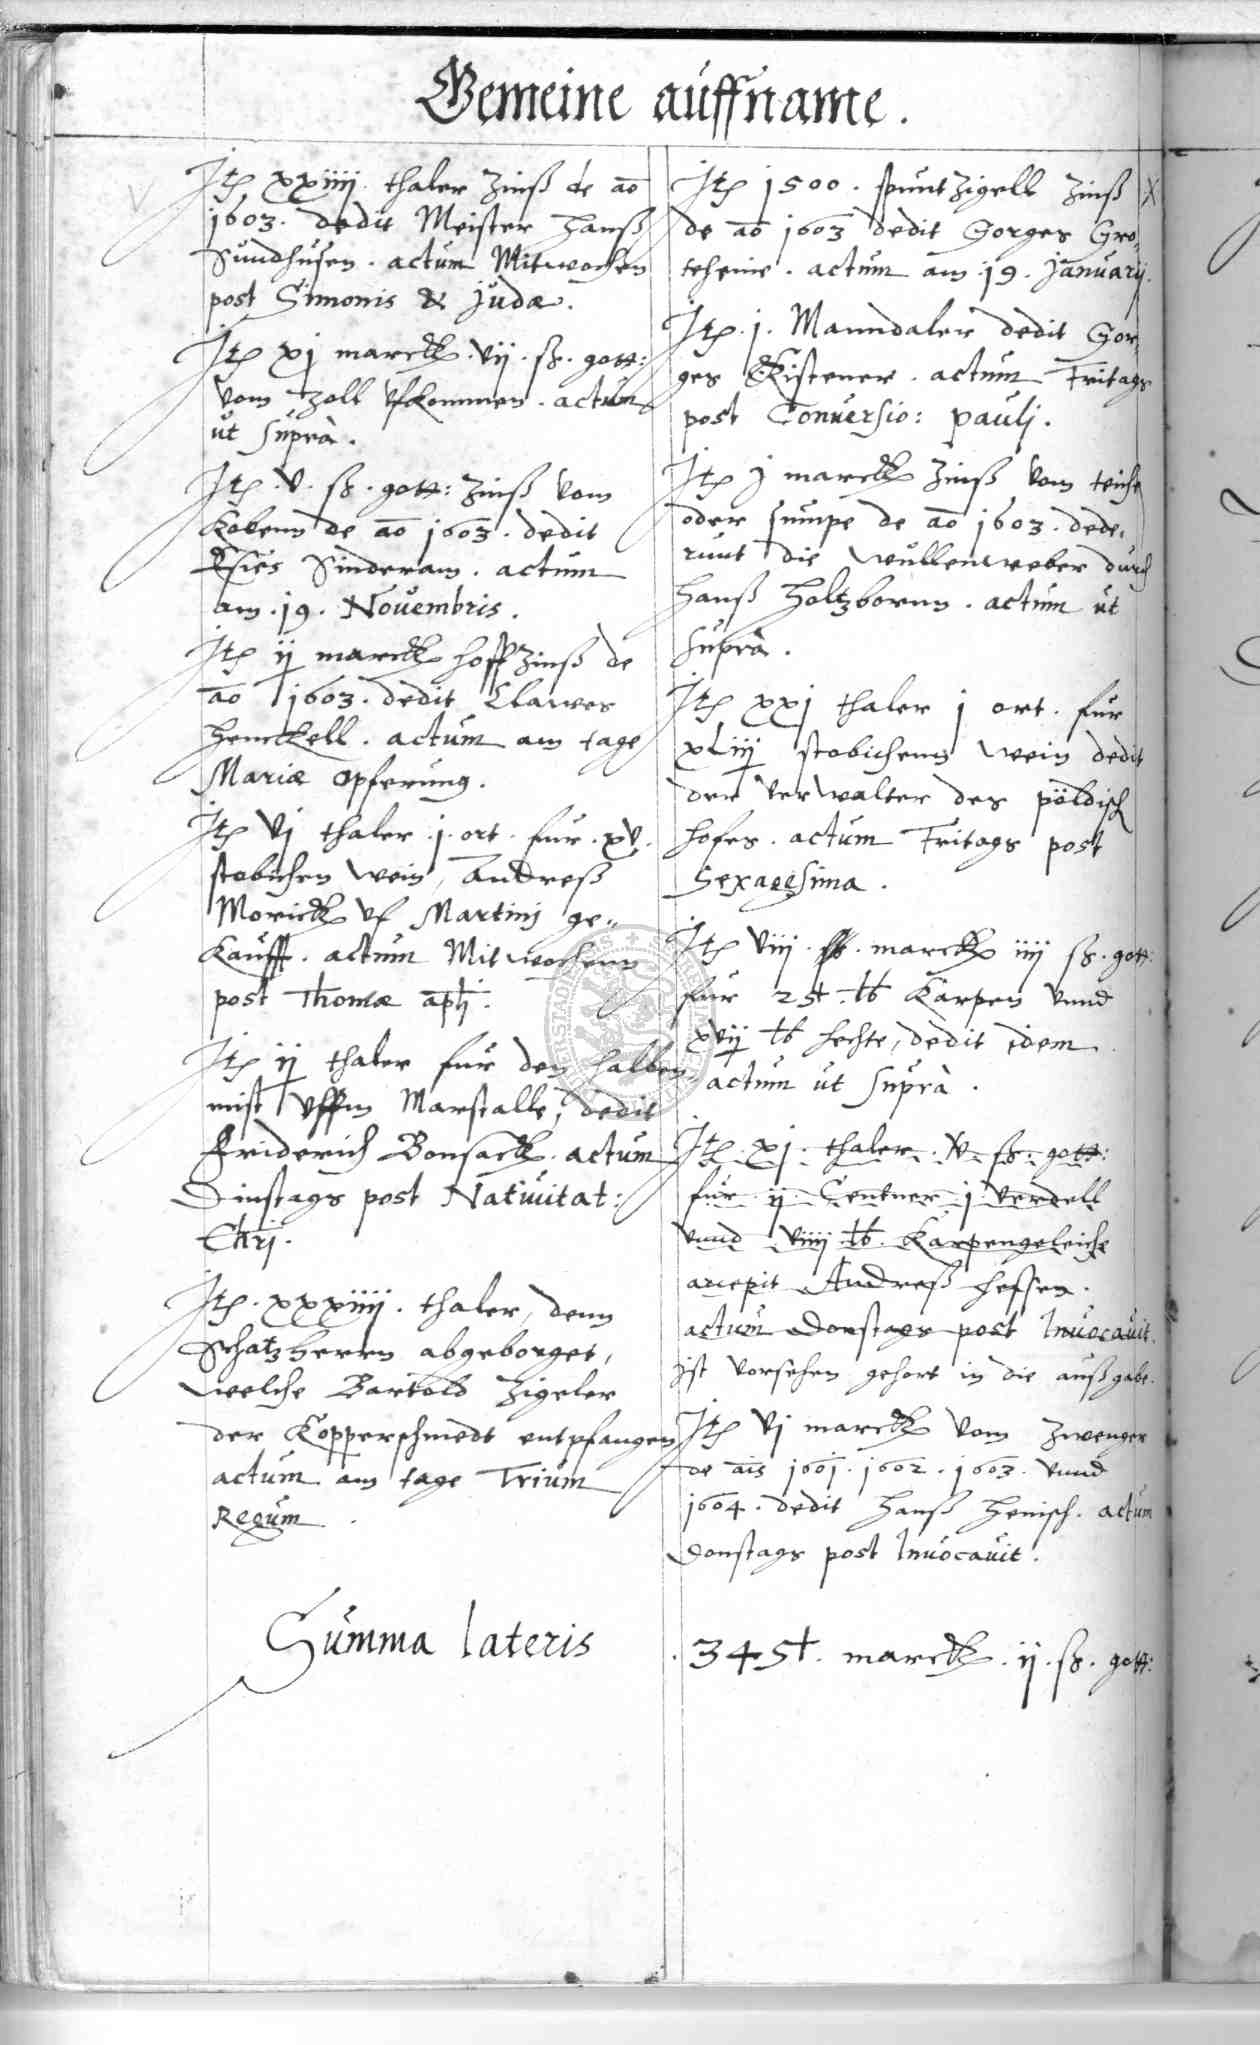 Gemeine auffname.
Itē xxiiij. thaler Zinß de aō
1603. dedit Meister Hanß
Sundhusen. actum Mitwochen
post Simonis & Judæ.
Itē xj marck. vij. ß. gott:
vom Zoll vfkommen. actum
ut suprà.
Itē. v. ß. gott: Zinß vom
Kobenn de aō 1603. dedit
Sinderam. actum
am. 19. Novembris.
Itē ij marck hoff Zinß de
aō 1603. dedit Clawes
Henckell. actum am tage
Mariæ opferung.
Itē vj thaler. j. ort. fur. xv.
stobichen wein, Andreß
Morick vf Martinj ge-
kaufft. actum Mitwochenn
post Thomæ apłi.
Itē ij thaler fur den halben
mist vffm Marstalle, dedit
Friderich Bonsack. actum
Dinstags post Nativitat:
Chrj.
Itē. xxxiiij. thaler, denn
Schatzherrn abgeborget,
welche Bartold Zigeler
der Kopperschmedt entpfangen
actum am tage Trium
Regum.
Itē 1500. spunt Zigell Zinß
de aō 1603 dedit Gorges Gro-
teheine. actum am. 19. January.
Itē. j. Manndaler dedit Gor-
ges Kistener. actum Fritags
post Conversio: paulj.
Itē j marck Zinß vom teiche
oder sumpe de aō 1603. dede-
runt die wullenweber durch
Hanß Holtzbornn. actum ut
suprà.
Itē xxj thaler j ort. fur
xliij stobichenn wein dedit
der verwalter des pöldisch
hofes. actum Fritags post
Sexagesima.
Itē viij. marck iiij ß. gott:
fur 25½. ℔ Karpen vnnd
xvij ℔ hechte, dedit idem
actum ut suprà.
Itē. xj. thaler. v. ß. gott:
fur. ij. Centner. j. verdell
vnnd viiij ℔. Karpengeleiche
accepit Andreß Hessen.
actum Donstags post Invocavit.
Ist vorsehen gehort in die außgabe.
Itē vj marck vom Zwenger
de ais 1601. 1602. 1603. vnnd
1604. dedit Hanß Henisch. actum
Donstags post Invocavit.
Summa lateris . 345½. marck. ij. ß. gott: